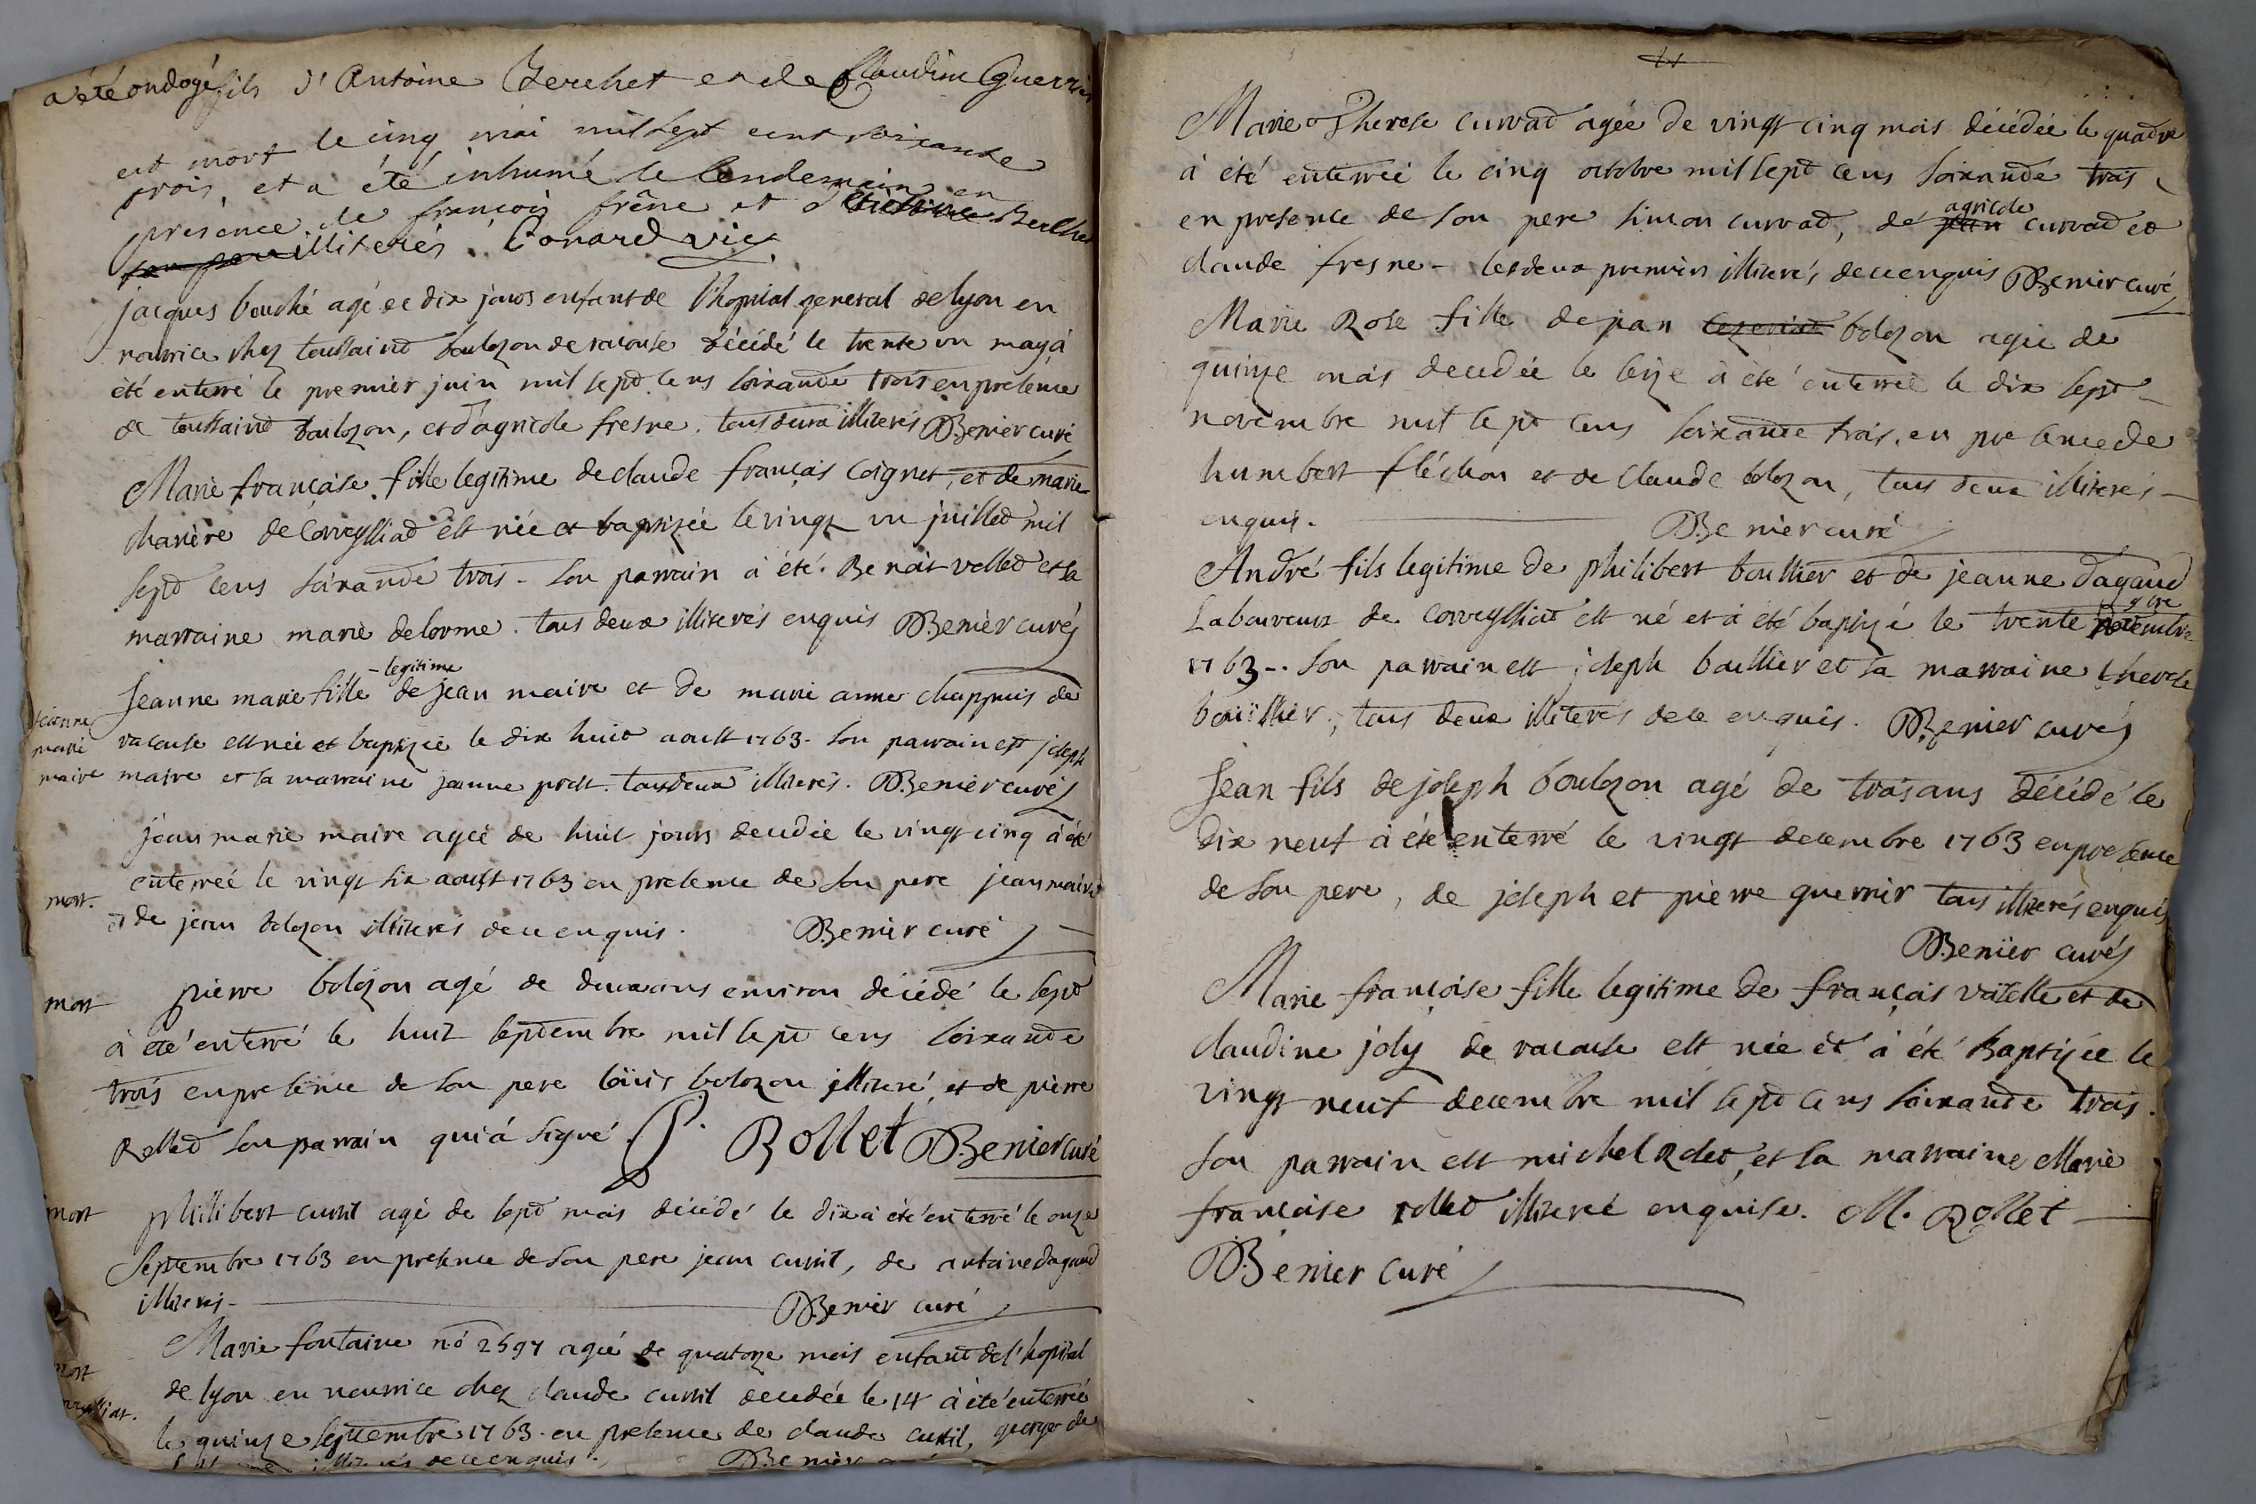 a été ondoyé fils d'Antoine Berchet et de Claudine Guerrin
est mort le cinq mai mil sept cent soixante
trois et a été inhumé le lendemain en
présence de françois frêne et d'Antoine Berchet
son pere illiterés. Bonard vic
jacques bouché agé de dix jours enfant de l'hopital general de lyon en
nourrice chez toussaind boulozon de racouse décédé le trente un may à
été enterré le premier juin mil sept cens soixande trois en presence
de toussaind boulozon, et d'agricole fresne. tous deux illiterés Benier curé
Marie françoise fille legitime de claude françois Coignet, et de marie
charière de Corveyssiad est née et baptizée le vingt un juilled mil
sept cens soixande trois - son parrain à été. Benoit volled et la
marraine marie delorme. tous deux illiterés enquis Benier curé
Jeanne marie fille - legitime de jean maire et de marie anne chappuis de
jeanne marie maire
racouse est née et baptizée le dix huit aoust 1763 - son parrain est joseph
maire et sa marraine jeanne prost. tous deux illiterés. Benier curé
jean marie maire agée de huit jours decedée le vingt cinq à été
enterreé le vingt six aoust 1763 en presence de son pere jean maire
mort.
et de jean bolozon illiterés de ce enquis. Benier curé
mort
pierre bolozon agé de deux ans environ décédé le sept
à été enterré le huit septembre mil sept cens soixande
trois en presence de son pere loüis bolozon illiteré, et de pierre
Rolled son parrain qui á signé P. Rollet Benier curé
mort
philibert curtil agé de sept mois décédé le dix à été enterré le onze
Septembre 1763 en presence de son pere jean curtil, de antoine dagaud
illiterés - Benier curé
Marie fontaine nó 2597 agée de quatorze mois enfant de l'hopital
mort
de lyon en nourrice chez claude curtil decedée le 14 à été enterrée
le quinze septembre 1763 - en presence de claude curtil, george de
illiterés de ce enquis. Benier
Marie Therese curvad agée de vingt cinq mois décédée le quadre
à été enterreé le cinq octobre mil sept cens soixande trois
en presence de son pere simon curvad, de jean agricole curvad et
claude fresne - les deux premiers illiterés de ce enquis Benier curé
Marie Rose fille de jean bolozon agée de
quinze mois decedée le seize à été enterreé le dix sept -
novembre mil sept cens soixande trois, en presence de
humbert fléchon et de claude bolozon, tous deux illiterés -
enquis. - Benier curé
André fils legitime de philibert boullier et de jeanne dagaud
Laboureurs de Corveyssiad est né et à été baptizé le trente novembre 9bre
1763 -. son parrain est joseph boullier et sa marraine therese
boüillier, tous deux illiterés de ce enquis. Benier curé
Jean fils de joseph boulozon agé de trois ans décédé le
dix neuf à été enterré le vingt decembre 1763 en presence
de son pere, de joseph et pierre guerrier tous illiterés enquis
Benier curé
Marie françoise fille legitime de françois vatelle et de
claudine joly de racouse est née et à été Baptizée le
vingt neuf decembre mil sept cens soixande trois.
son parrain est michel Roled, et sa marraine Marie
francoise rolled illiterée enquise. M. Rollet -
Benier curé